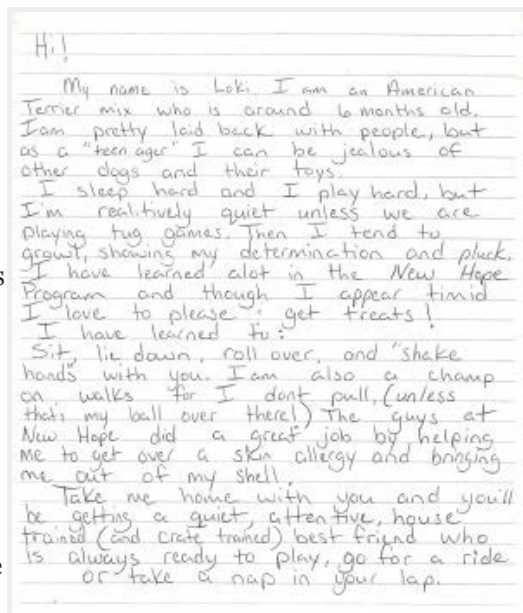 Hi!
My name is Loki I am an American
Terrier mix who is around 6 months old.
I am pretty laid back with people, but
as a "teen ager" I can be jealous of
other dogs and their toys.
I sleep hard and I play hard, but
I'm realitively quiet unless we are
playing tug games. Then I tend to
growl, showing my determination and pluck.
I have learned alot in the New Hope
Program and though I appear timid
I love to please & get treats!
I have learned to:
Sit, lie down, roll over, and "shake
hands" with you. I am also a champ
on walks for I dont pull, (unless
thats my ball over there!) The guys at
New Hope did a great job by helping
me to get over a skin allergy and bringing
me out of my shell.
Take me home with you and you'll
be getting a quiet, attentive, house
trained (and crate trained) best friend who
is always ready to play, go for a ride
or take a nap in your lap.